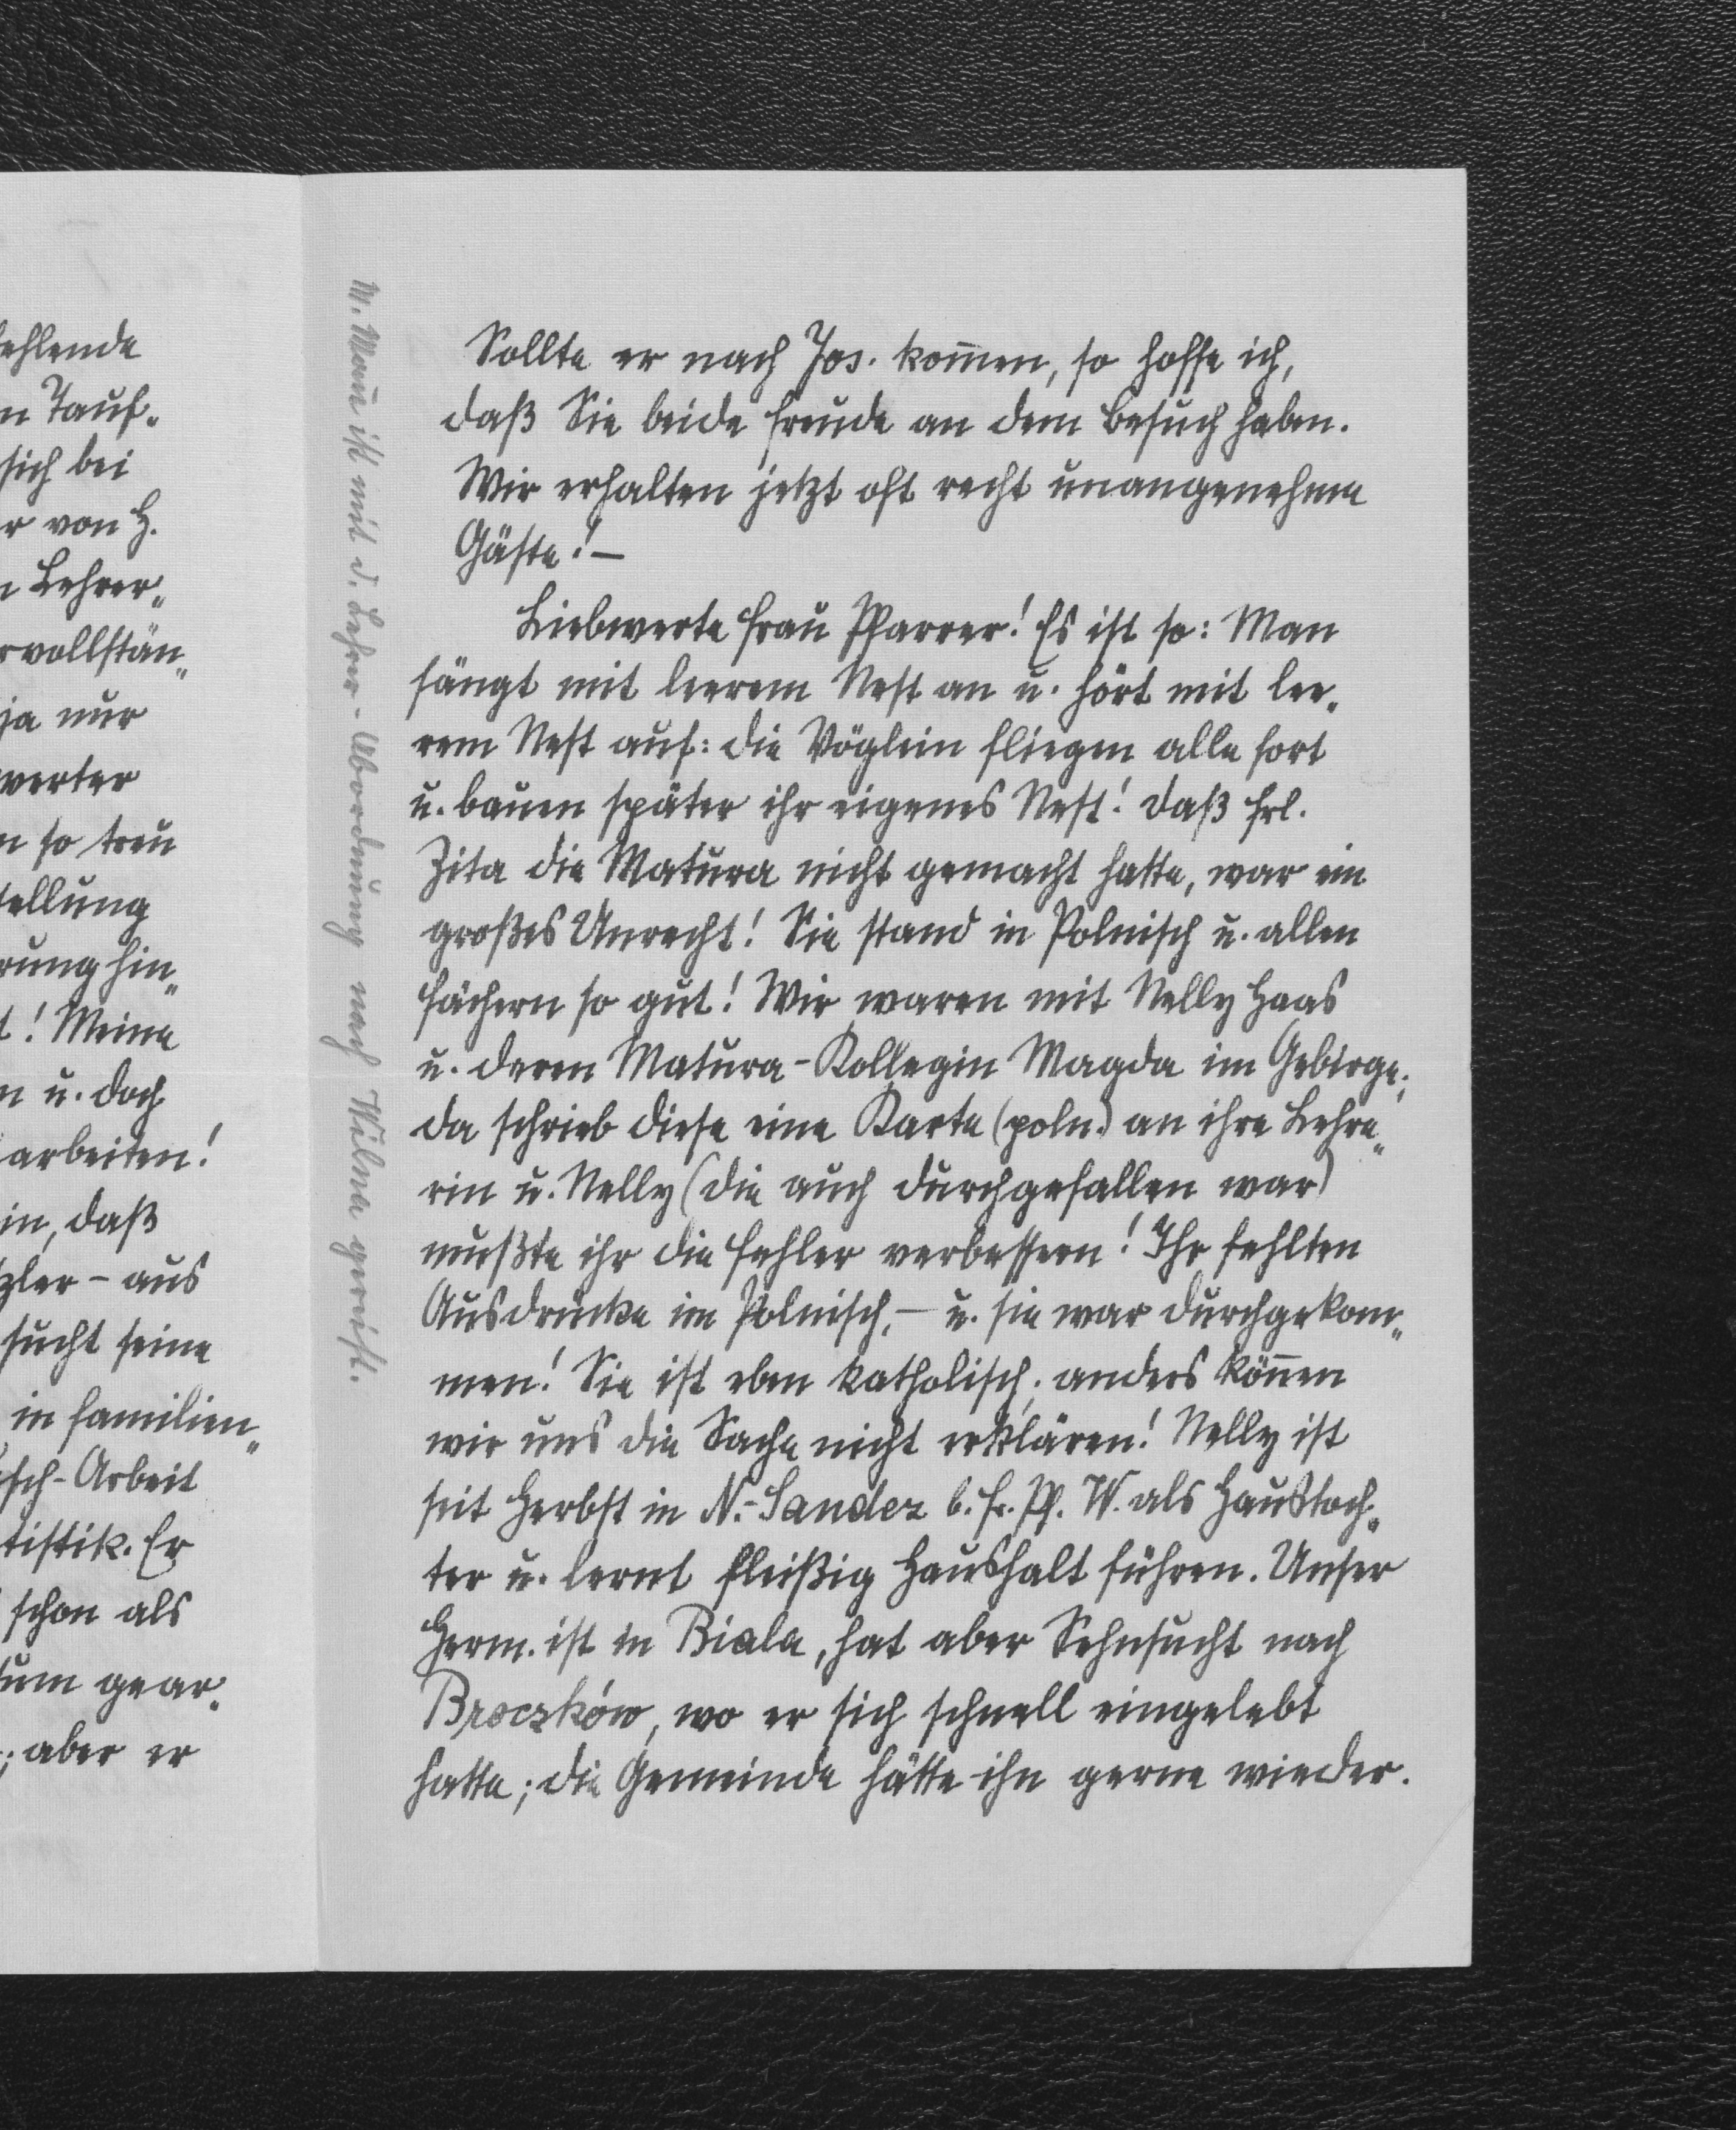 ehlende
n Tauf-
sich bei
r von H.
n Lehrer-
rvollstän-
ja nur
werter
n so treu
tellung
rung hin-
t! Meine
n u. doch
arbeiten!
in, daß
zler - aus
sucht seine
in Familien-
sch-Arbeit
tistik. Er
schon als
um gear-
; aber er
M. Mann ist mit d. Lehrer-Abordnung nach Wilna gereist.
Sollte er nach Jos. kom̅en, so hoffe ich,
daß Sie beide Freude an dem Besuch haben.
Wir erhalten jetzt oft recht unangenehme
Gäste! —
Liebwerte Frau Pfarrer! Es ist so: Man
fängt mit leerem Nest an u. hört mit lee-
rem Nest auf: die Vöglein fliegen alle fort
u. bauen später ihr eigenes Nest! Daß Frl.
Zita die Matura nicht gemacht hatte, war ein
großes Unrecht! Sie stand in Polnisch u. allen
Fächern so gut! Wir waren mit Nelly Haas
u. deren Matura-Kollegin Magda im Gebirge;
da schrieb diese eine Karte (poln.) an ihre Lehre-
rin u. Nelly (die auch durchgefallen war)
mußte ihr die Fehler verbessern! Ihr fehlten
Ausdrücke im Polnisch, — u. sie war durchgekom-
men! Sie ist eben katholisch; anders kön̅en
wir uns die Sache nicht erklären! Nelly ist
seit Herbst in N.-Sandez b. Fr. Pf. W. als Haustoch-
ter u. lernt fleißig Haushalt führen. Unser
Herm. ist in Biala, hat aber Sehnsucht nach
Broczków, wo er sich schnell eingelebt
hatte; die Gemeinde hätte ihn gerne wieder.